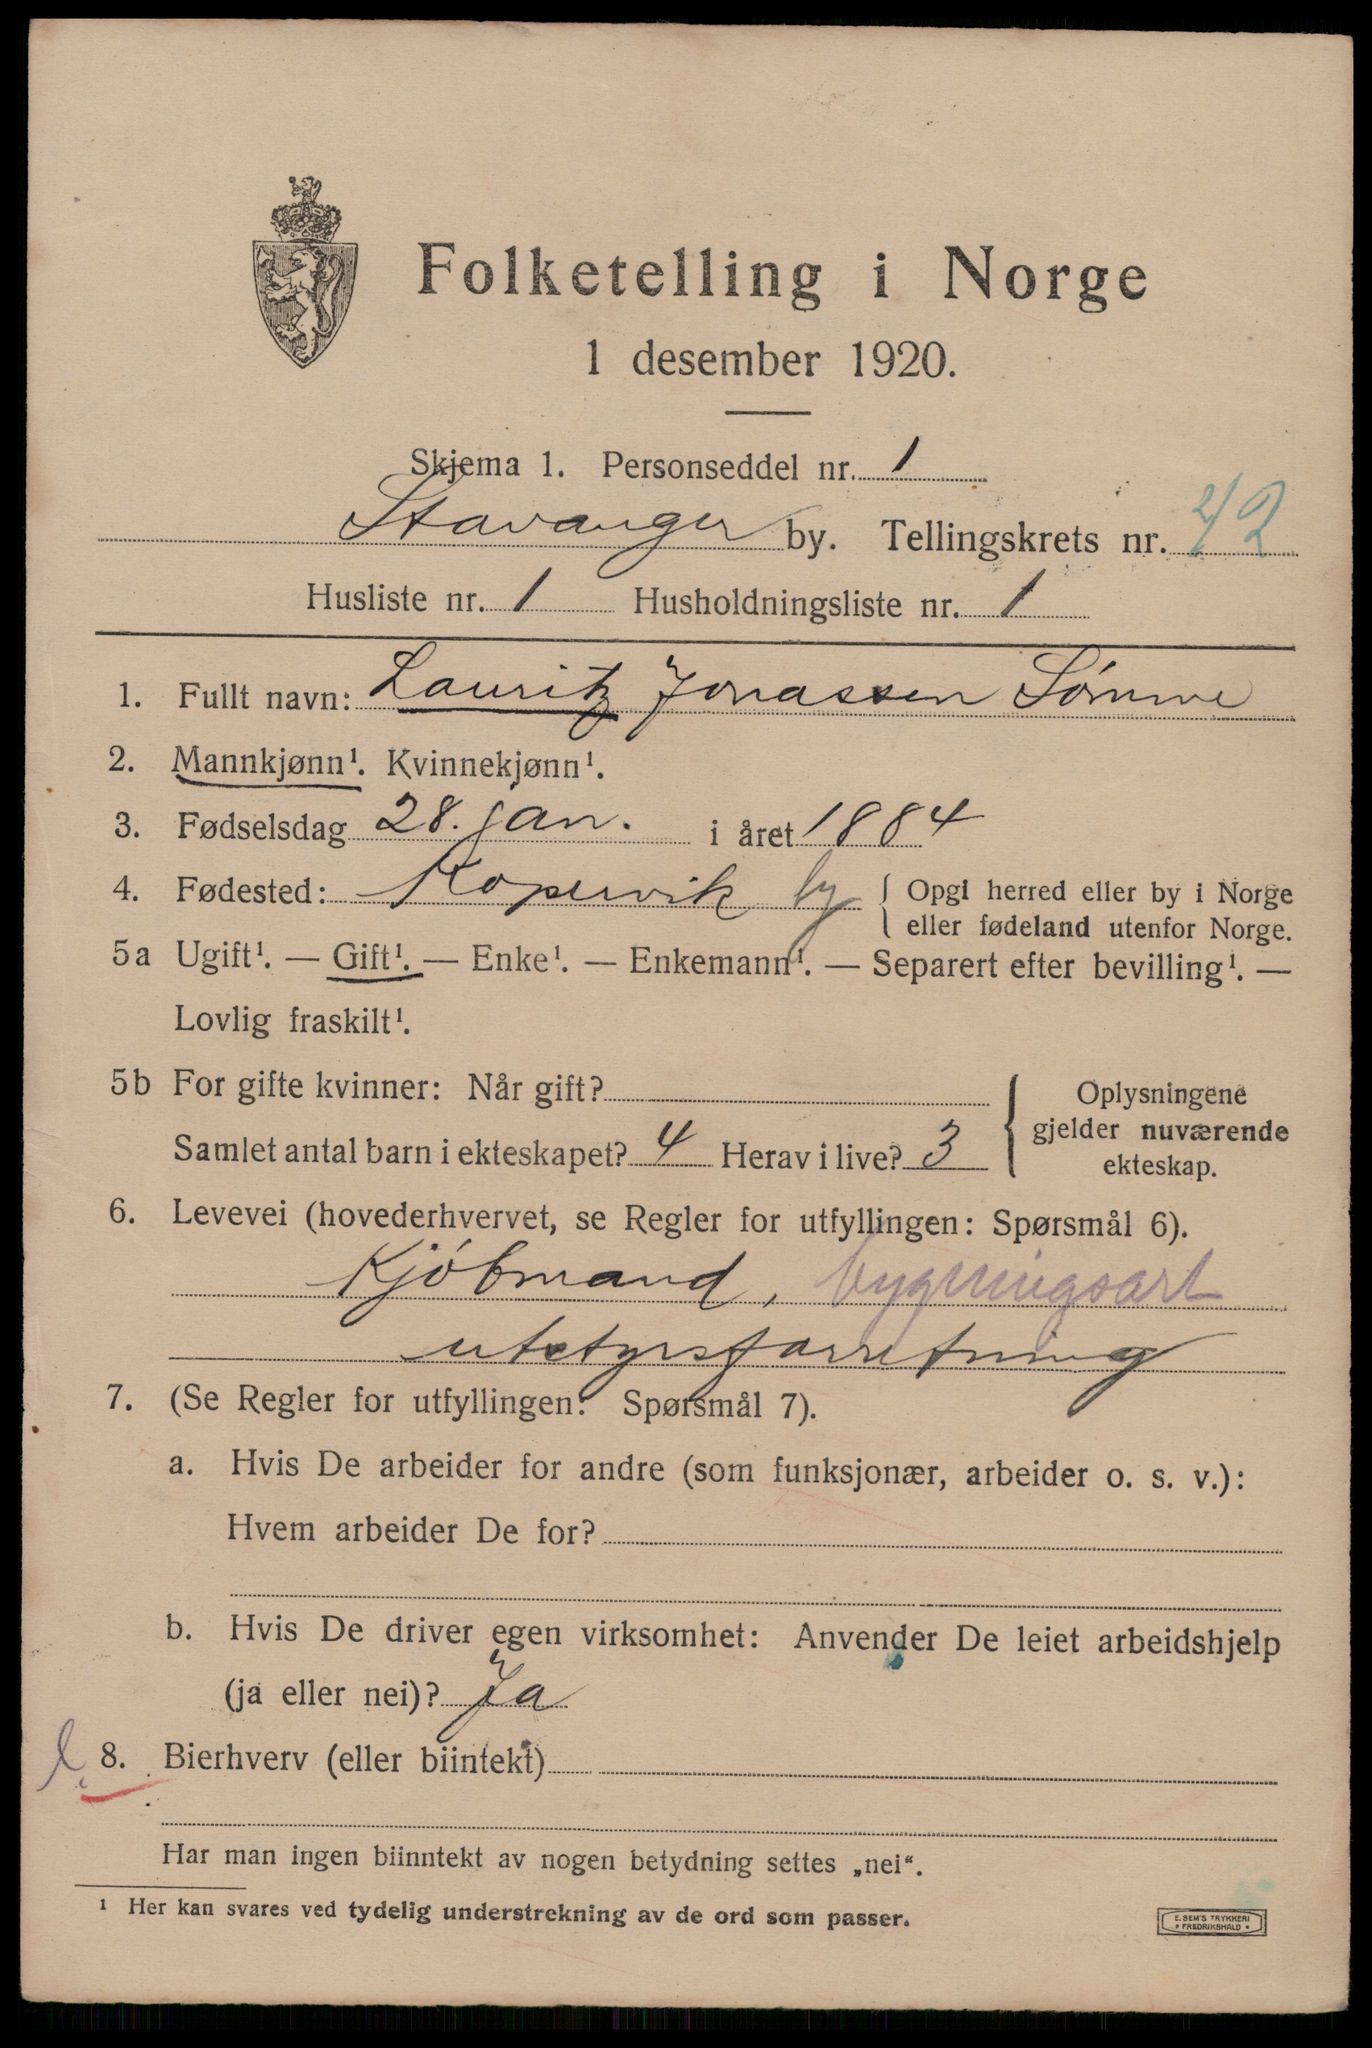 Folketelling i Norge
1 desember 1920.
Skjema 1. Personseddel nr. 1
Stavanger by. Tellingskrets nr. 42
Husliste nr. 1 Husholdningsliste nr. 1
1. Fullt navn: Lauritz Jonassen Sömme
2. Mannkjønn¹. Kvinnekjønn¹.
3. Fødselsdag 28. jan. i året 1884
4. Fødested: Kopervik by { Opgi herred eller by i Norge
eller fødeland utenfor Norge.
5a Ugift¹. — Gift¹. — Enke¹. — Enkemann¹. — Separert efter bevilling¹. —
Lovlig fraskilt¹.
5b For gifte kvinner: Når gift?
Samlet antal barn i ekteskapet? 4 Herav i live? 3
Oplysningene
gjelder nuværende
ekteskap.
6. Levevei (hovederhvervet, se Regler for utfyllingen: Spørsmål 6).
Kjöbmand, bygningsart
utstyrsforretning
7. (Se Regler for utfyllingen: Spørsmål 7).
a. Hvis De arbeider for andre (som funksjonær, arbeider o. s. v.):
Hvem arbeider De for?
b. Hvis De driver egen virksomhet: Anvender De leiet arbeidshjelp
(ja eller nei)? Ja
8. Bierhverv (eller biintekt)
Har man ingen biinntekt av nogen betydning settes „nei“.
¹ Her kan svares ved tydelig understrekning av de ord som passer.
E. SEM'S TRYKKERI
* FREDRIKSHALD *